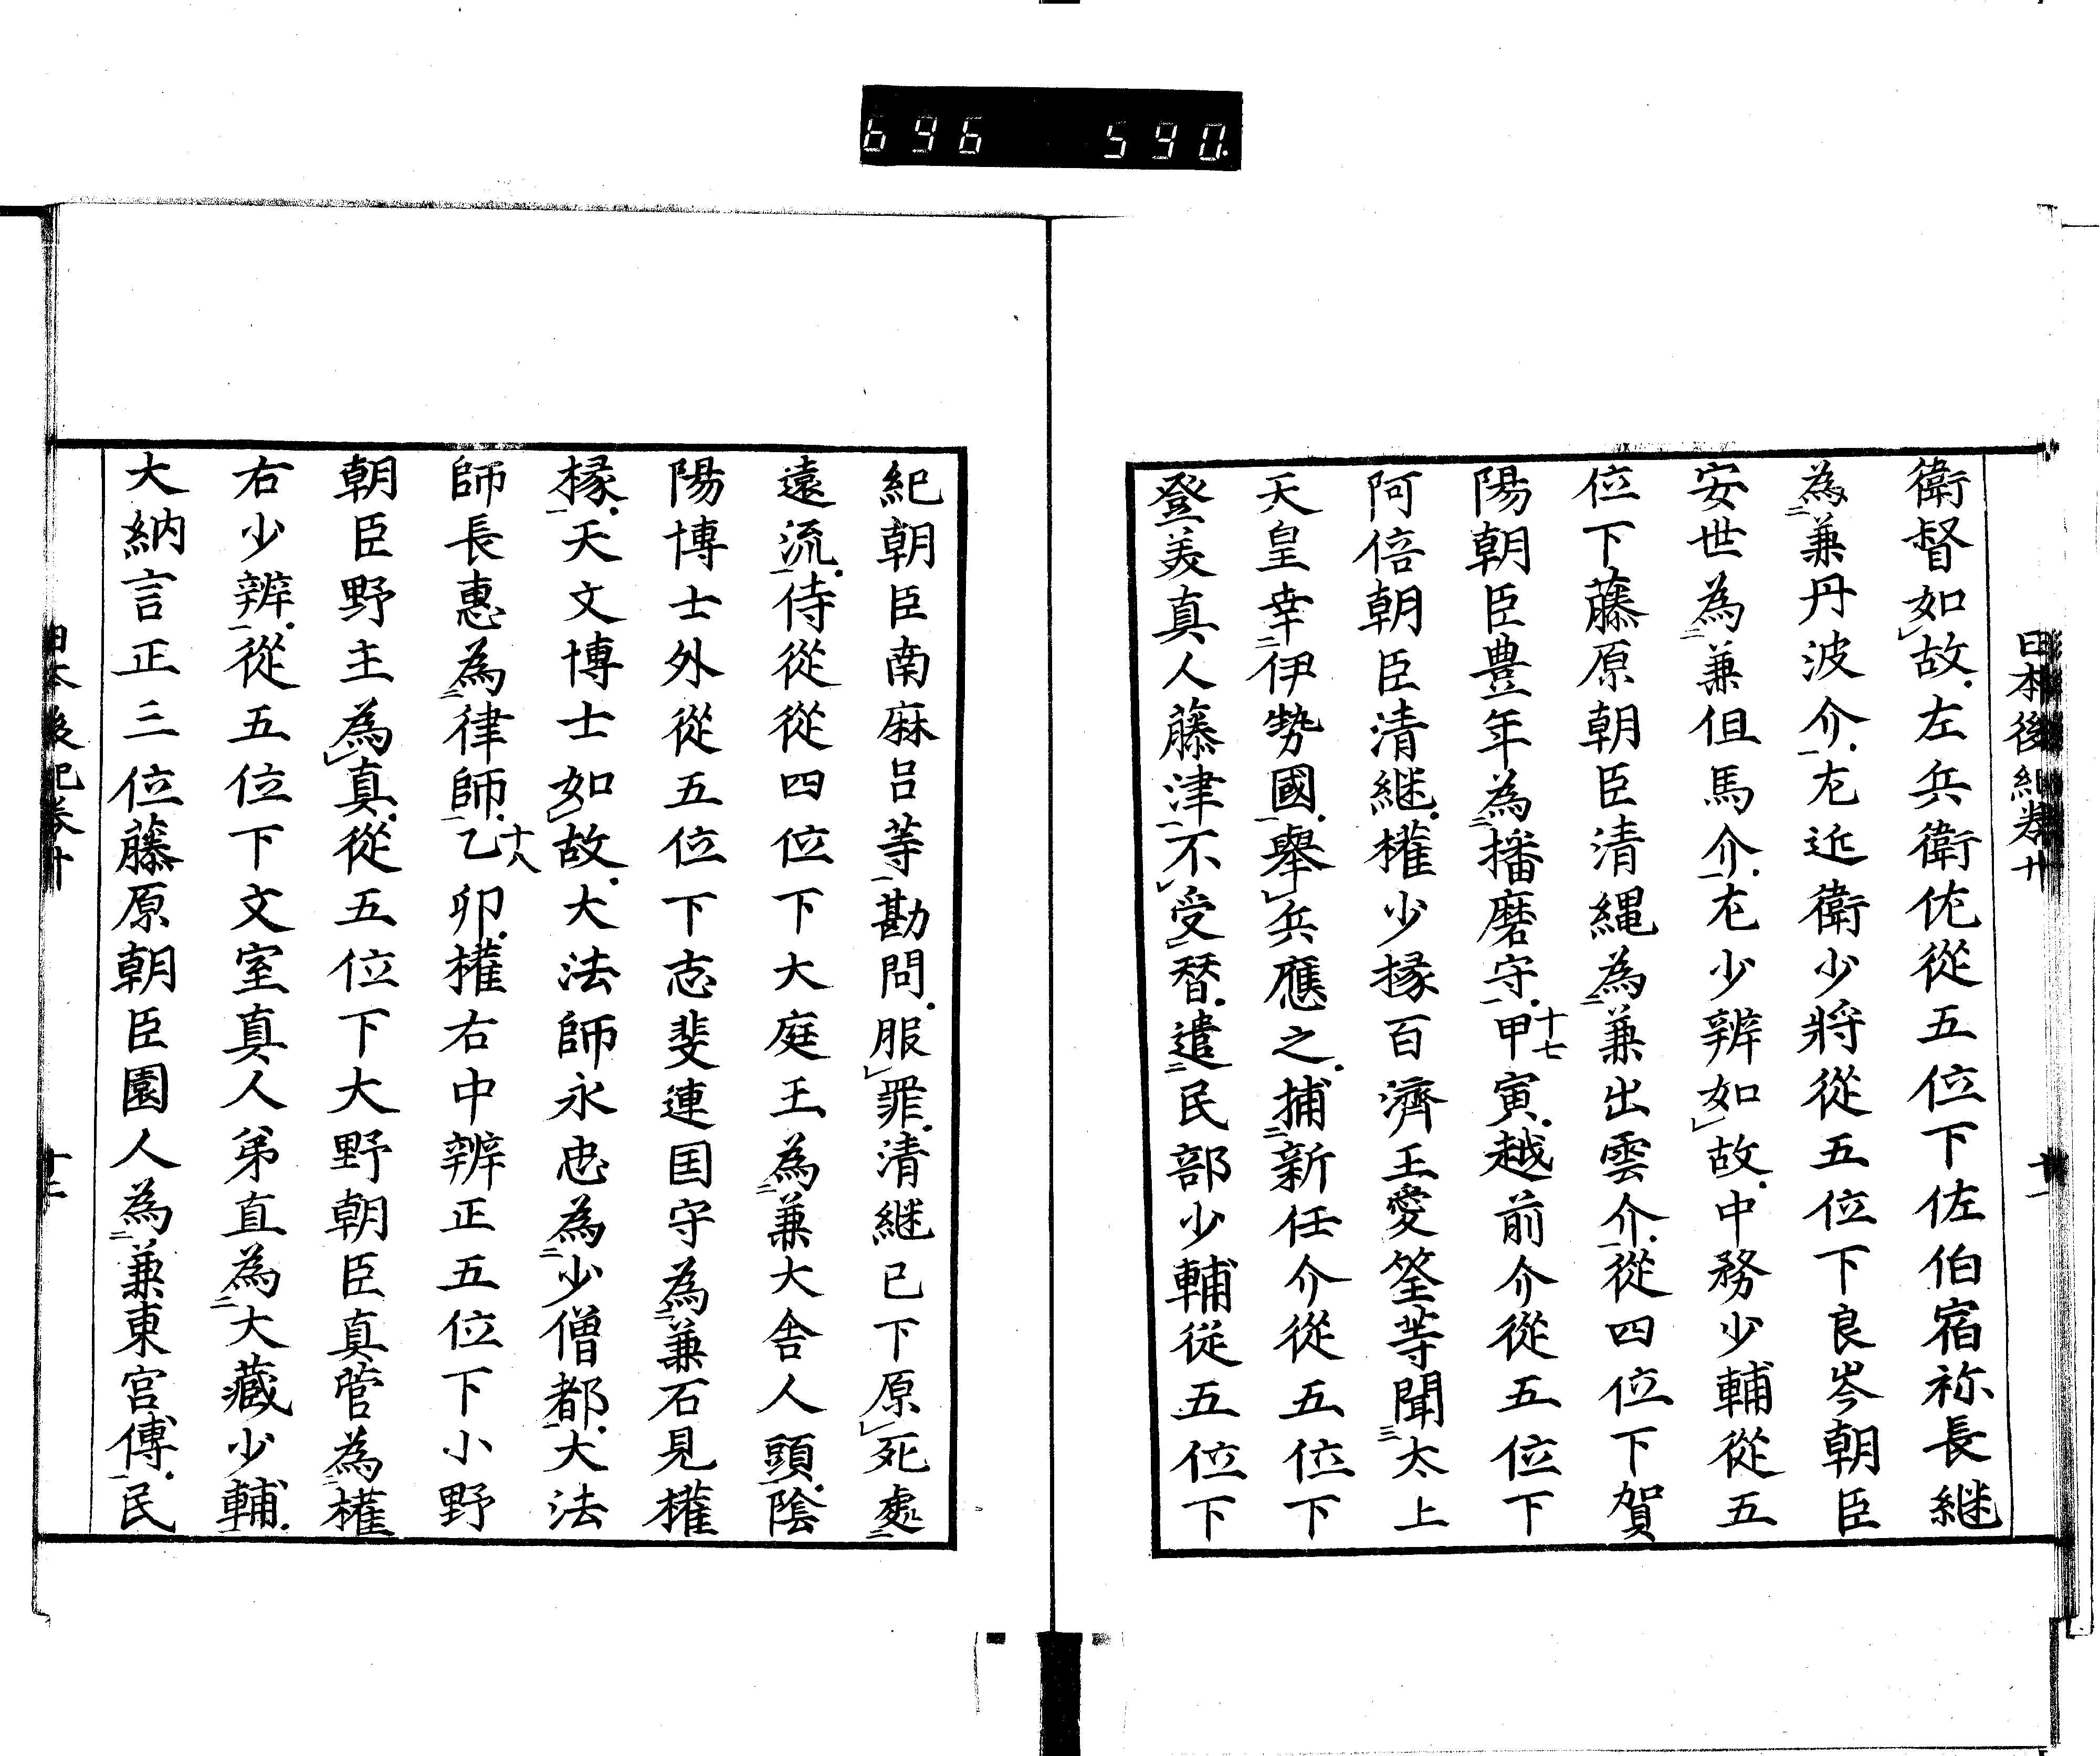 696 590.
日本後紀卷廿
十一
衛督如故。左兵衛佐從五位下佐伯宿祢長継
為二兼丹波介一。左近衛少將從五位下良岑朝臣
安世為二兼伹馬介一。左少辨如レ故。中務少輔從五
位下藤原朝臣清縄為二兼出雲介一。從四位下賀
陽朝臣豊年為二播磨守一。十七甲寅。越前介從五位下
阿倍朝臣清継。權少掾百濟王愛筌等聞三太上
天皇幸二伊勢國一。舉レ兵應之。捕二新任介從五位下
登美真人藤津一不レ受レ替。遣二民部少輔從五位下
紀朝臣南麻呂等一勘問。服レ罪。清継已下原レ死處二
遠流一。侍從從四位下大庭王為二兼大舎人頭一。陰
陽博士外從五位下志斐連国守為二兼石見權
掾一。天文博士如レ故。大法師永忠為二少僧都一。大法
師長惠為二律師一。十八乙卯。權右中辨正五位下小野
朝臣野主為レ真。從五位下大野朝臣真菅為二權
右少辨一。從五位下文室真人弟直為二大藏少輔一。
大納言正三位藤原朝臣園人為二兼東宮傅一。民
日本後紀卷廿
十二